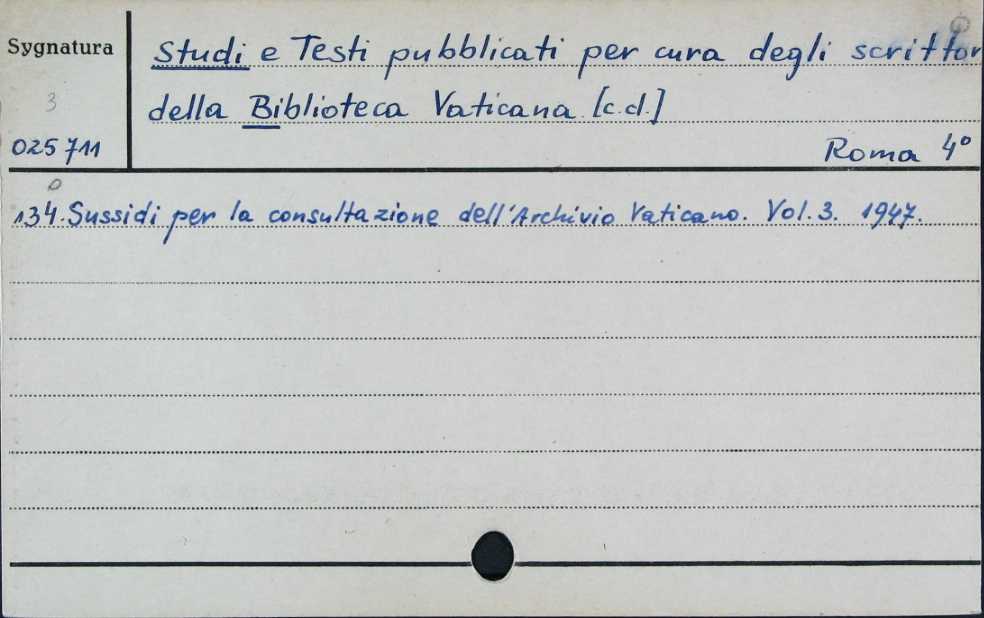 Sygnatura
3
025711
Studi e Testi pubblicati per cura degli scrittor
della Biblioteca Vaticana [c.d.]
Roma 4º
134. Sussidi per la consultazione dell'Archivio Vaticano. Vol. 3. 1947.